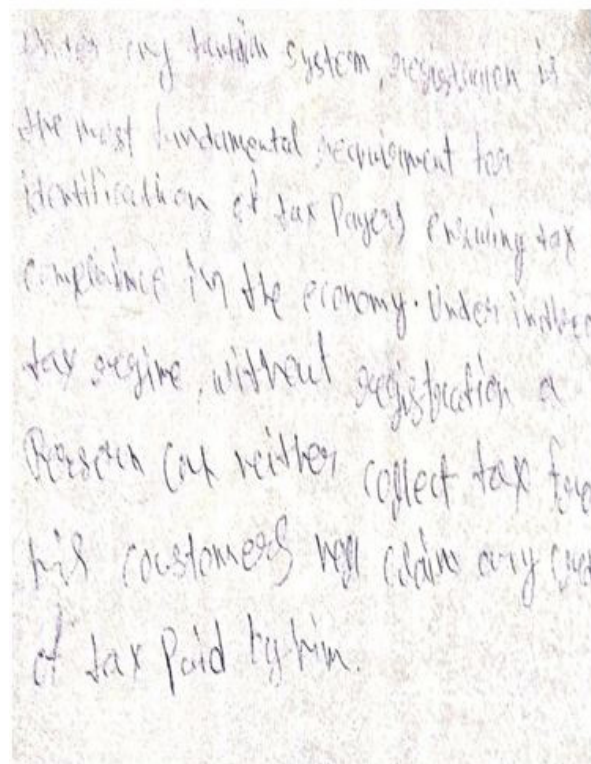 Under any taxation system, registration is
the most fundamental requirement for
identification of tax Payers ensuring tax
compliance in the economy. Under indirec
tax regime, without registration a
Person can neither collect tax fro
his customers nor claim any cred
of tax Paid by him.